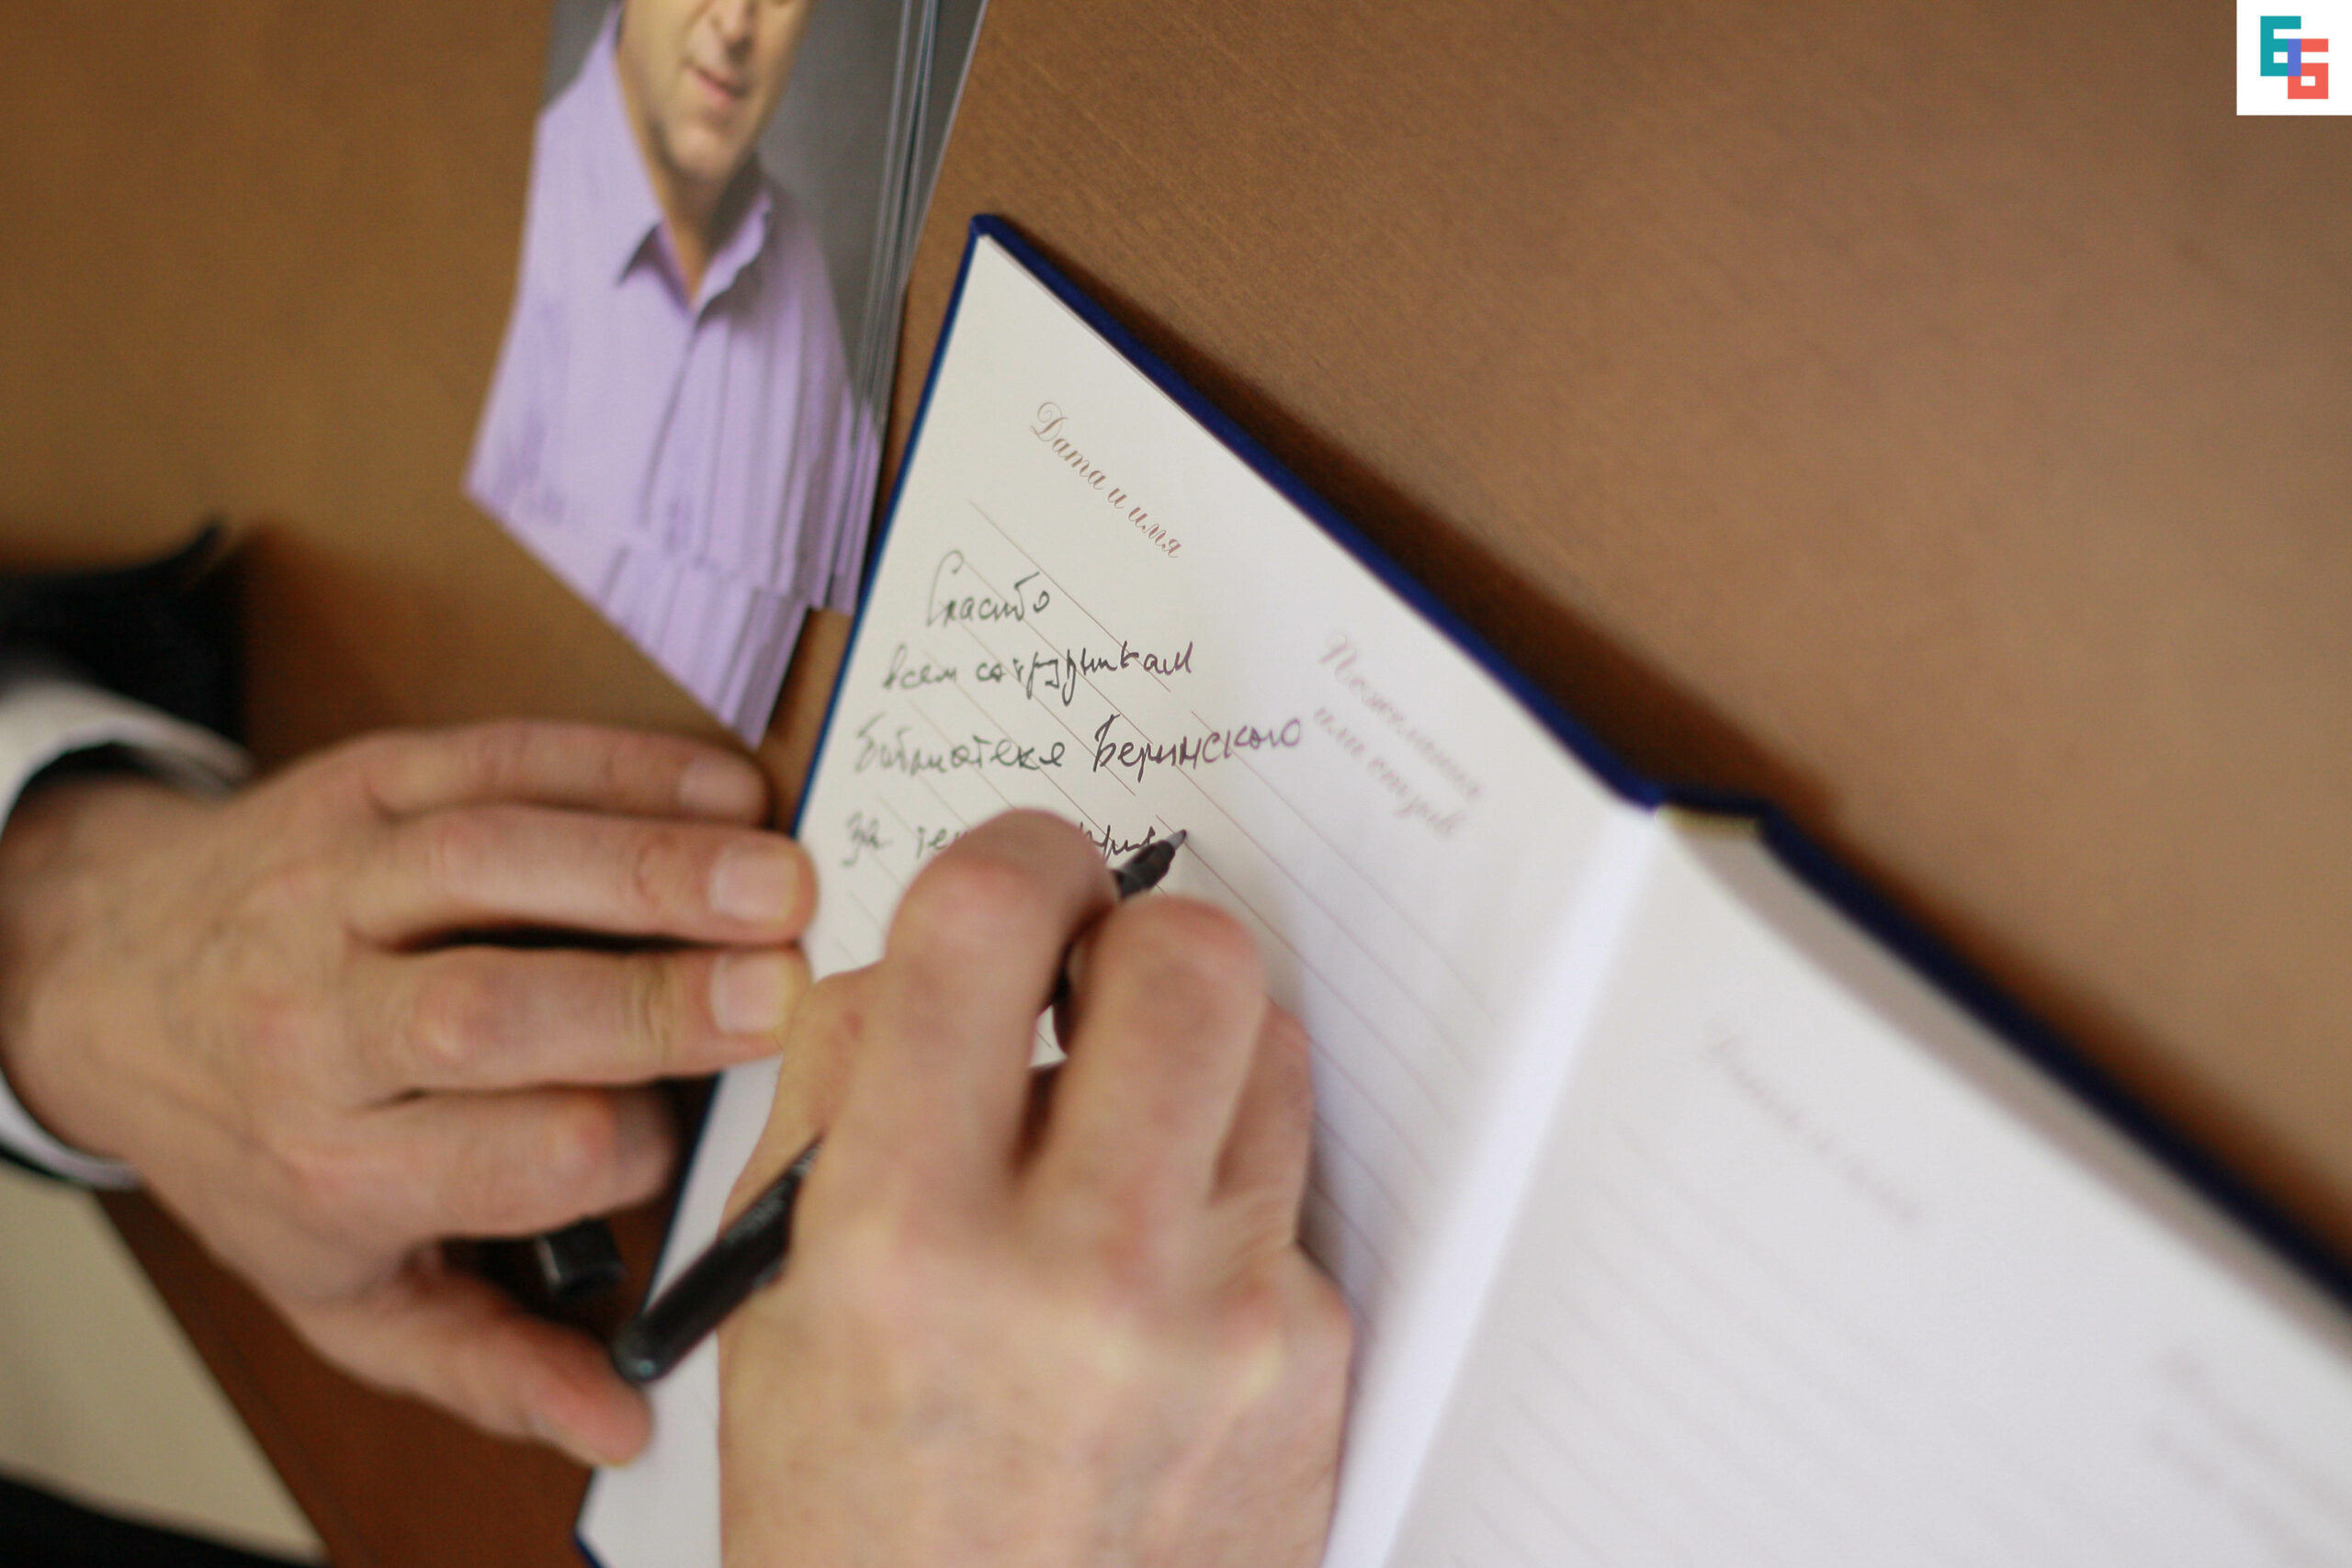 Дата и имя
Пожелания
или отзыв
Спасибо
всем сотрудникам
библиотеки Белинского
За